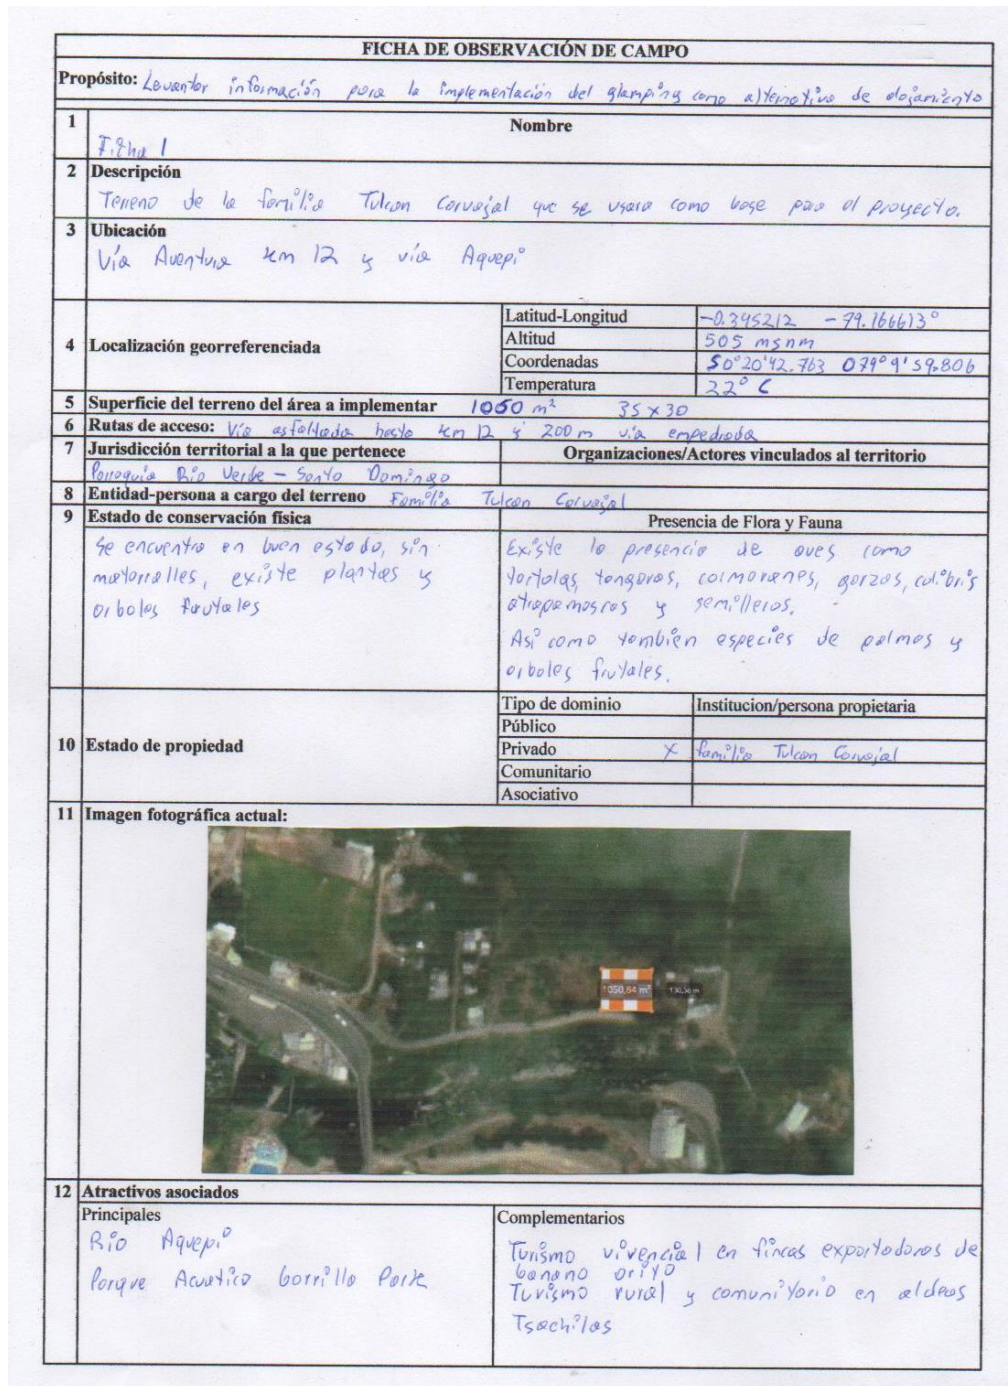 FICHA DE OBSERVACIÓN DE CAMPO
Propósito: Levantar información para la implementación del glamping como alternativa de alojamiento
1 Nombre
Ficha 1
2 Descripción
Terreno de la familia Tulcan Carvajal que se usara como base para el proyecto.
3 Ubicación
Vía Aventura km 12 y vía Aquepi
4 Localización georreferenciada
Latitud-Longitud -0.345212 -79.166613°
Altitud 505 msnm
Coordenadas S0°20'42.763 079°9'59.806
Temperatura 22° C
5 Superficie del terreno del área a implementar 1050 m² 35 x 30
6 Rutas de acceso: Vía asfaltada hasta km 12 y 200 m vía empedrada
7 Jurisdicción territorial a la que pertenece Organizaciones/Actores vinculados al territorio
Parroquia Río Verde - Santo Domingo
8 Entidad-persona a cargo del terreno Familia Tulcan Carvajal
9 Estado de conservación física Presencia de Flora y Fauna
Se encuentra en buen estado, sin
matorralles, existe plantas y
arboles frutales
Existe la presencia de aves como
tortolas, tangaras, cormoranes, garzas, colibris
atrapamoscas y semilleros.
Asi como tambien especies de palmas y
arboles frutales.
10 Estado de propiedad
Tipo de dominio Institucion/persona propietaria
Público
Privado X familia Tulcan Carvajal
Comunitario
Asociativo
11 Imagen fotográfica actual:
1050,84 m²
130,36 m
12 Atractivos asociados
Principales
Río Aquepi
Parque Acuatico Gorrillo Park
Complementarios
Turismo vivencial en fincas exportadoras de
banano orito
Turismo rural y comunitario en aldeas
Tsachilas